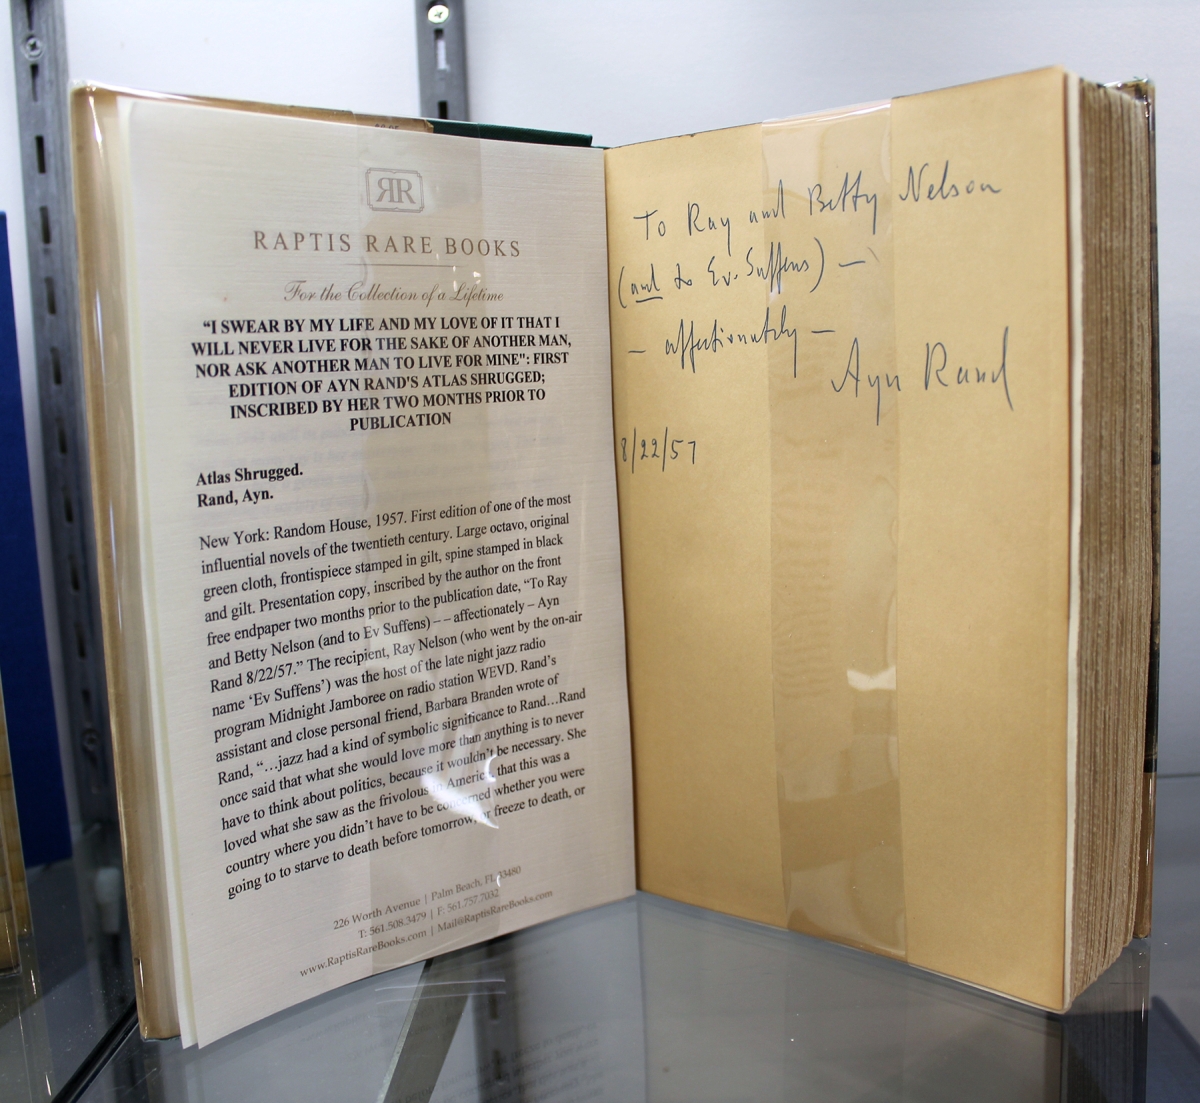 RR
RAPTIS RARE BOOKS
For the Collection of a Lifetime
“I SWEAR BY MY LIFE AND MY LOVE OF IT THAT I
WILL NEVER LIVE FOR THE SAKE OF ANOTHER MAN,
NOR ASK ANOTHER MAN TO LIVE FOR MINE": FIRST
EDITION OF AYN RAND'S ATLAS SHRUGGED;
INSCRIBED BY HER TWO MONTHS PRIOR TO
PUBLICATION
Atlas Shrugged.
Rand, Ayn.
New York: Random House, 1957. First edition of one of the most
influential novels of the twentieth century. Large octavo, original
green cloth, frontispiece stamped in gilt, spine stamped in black
and gilt. Presentation copy, inscribed by the author on the front
free endpaper two months prior to the publication date, “To Ray
and Betty Nelson (and to Ev Suffens) – – affectionately – Ayn
Rand 8/22/57.” The recipient, Ray Nelson (who went by the on-air
name ‘Ev Suffens’) was the host of the late night jazz radio
program Midnight Jamboree on radio station WEVD. Rand’s
assistant and close personal friend, Barbara Branden wrote of
Rand, “…jazz had a kind of symbolic significance to Rand…Rand
once said that what she would love more than anything is to never
have to think about politics, because it wouldn’t be necessary. She
loved what she saw as the frivolous in America, that this was a
country where you didn’t have to be concerned whether you were
going to to starve to death before tomorrow, or freeze to death, or
226 Worth Avenue | Palm Beach, FL 33480
T: 561.508.3479 | F: 561.757.7032
www.RaptisRareBooks.com | Mail@RaptisRareBooks.com
To Ray and Betty Nelson
(and to Ev. Suffens) —
— affectionately —
Ayn Rand
8/22/57